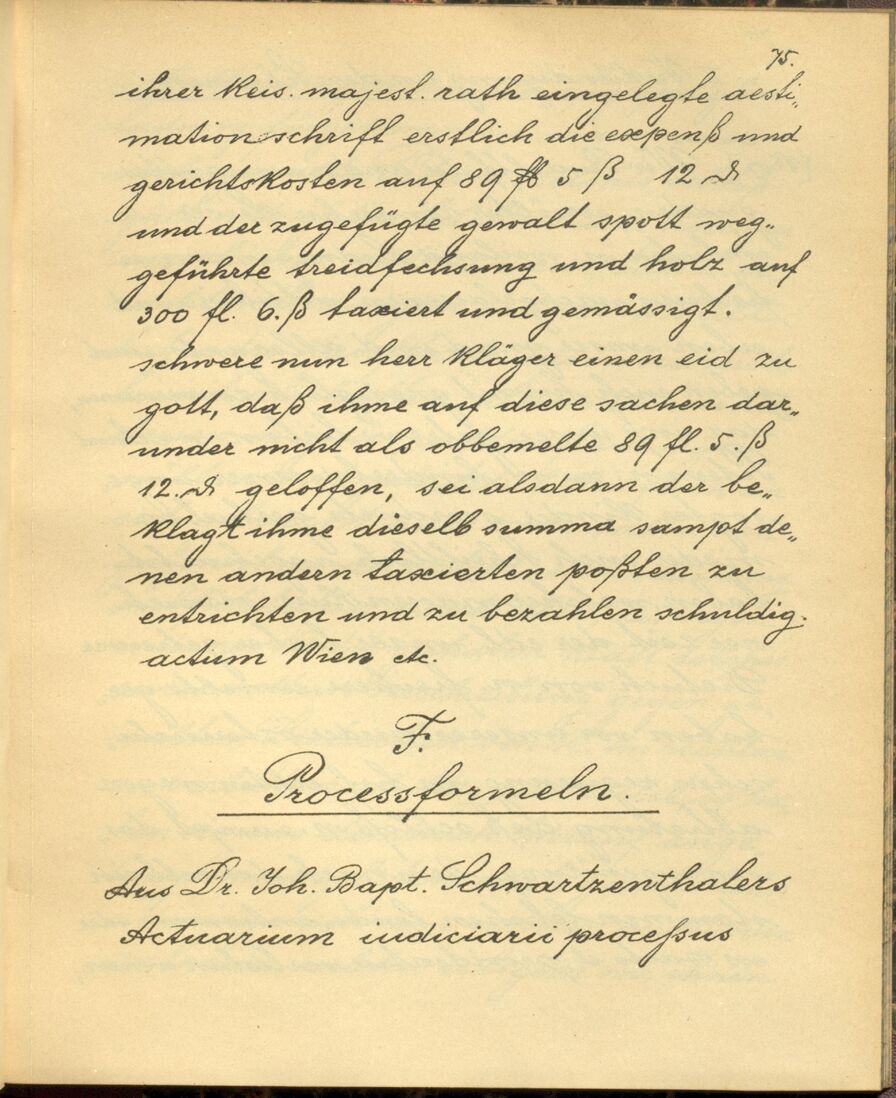 75.
ihrer Keis. majest. rath eingelegte aesti„
mationschrift erstlich die expenß und
gerichtskosten auf 89 ℔ 5 ß 12 ₰
und der zugefügte gewalt spott weg„
geführte treidfechsung und holz auf
300 fl. 6. ß taxiert und gemässigt.
schwere nun herr Kläger einen eid zu
gott, daß ihme auf diese sachen dar„
under nicht als obbemelte 89 fl. 5. ß
12. ₰ geloffen, sei alsdann der be„
klagt ihme dieselb summa sampt de„
nen andern taxierten poßten zu
entrichten und zu bezahlen schuldig.
actum Wien etc.
F.
Processformeln.
Aus Dr. Joh. Bapt. Schwartzenthalers
Actuarium iudiciarii proceßus